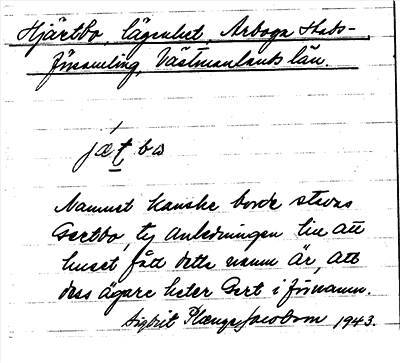 Hjärtbo, lägenhet, Arboga Stads-
församling, Västmanlands län.
jætbω
Namnet kanske borde stavas
Gertbo, ty anledningen till att
huset fått detta namn är, att
dess ägare heter Gert i förnamn.
Sigbrit Plænge Jacobson 1943.